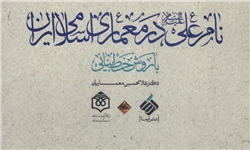 نام علی علیه‌السلام در معماری اسلامی ایران
با روش خط بنایی
دکتر غلامحسین معماریان